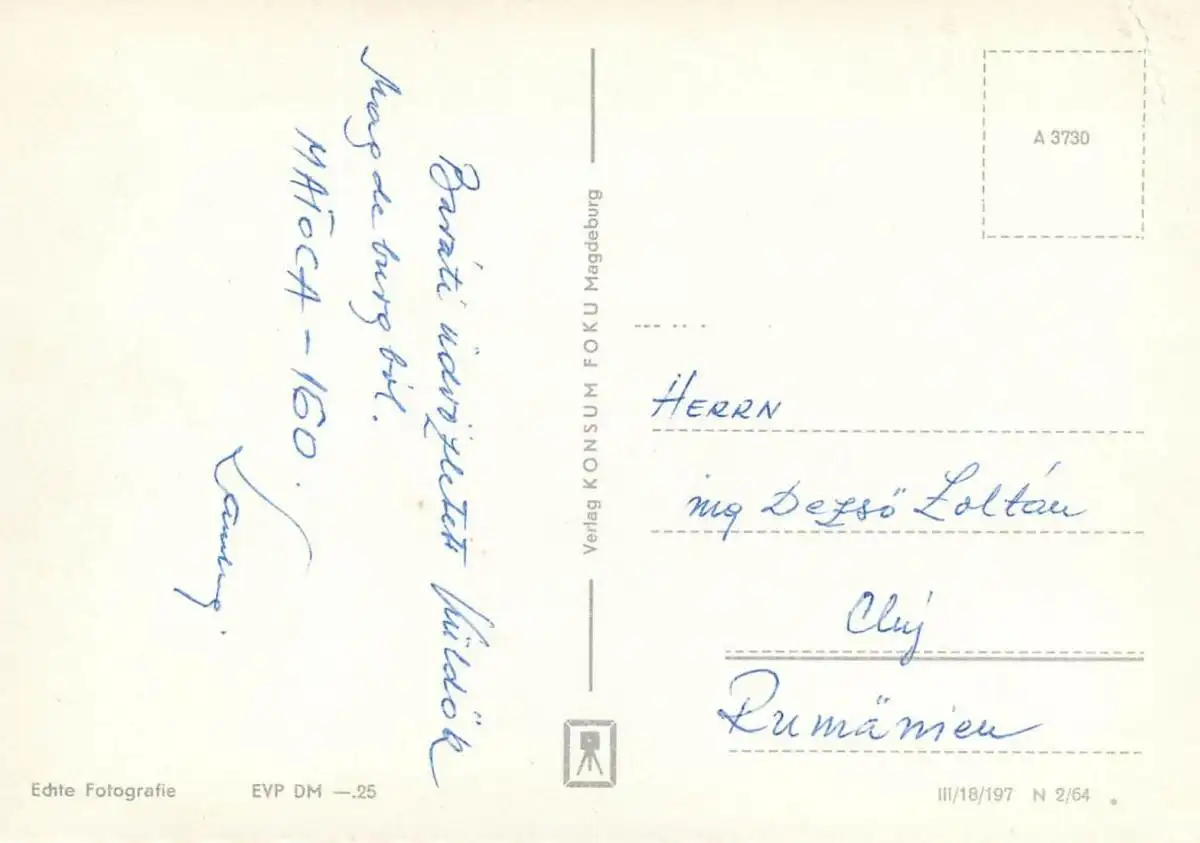 Baráti üdvözletet küldök
Magdeburgból.
MAIOCA - 160.
Verlag KONSUM FOKU Magdeburg
A 3730
HERRN
ing Dezsö Zoltán
Cluj
Rumänien
Echte Fotografie EVP DM —.25
III/18/197 N 2/64